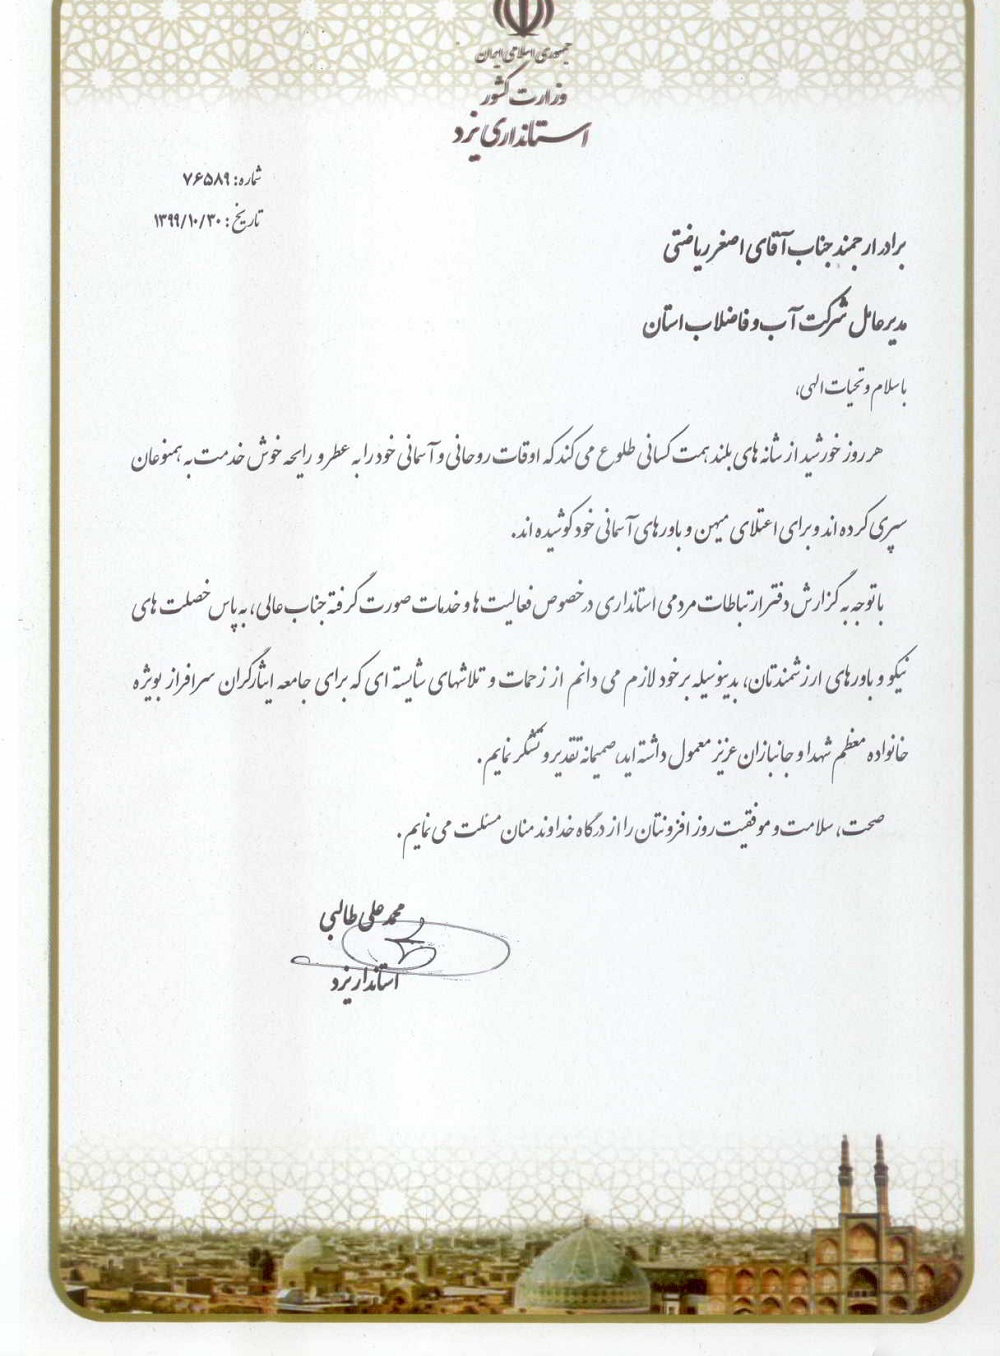 جمهوری اسلامی ایران
وزارت کشور
استانداری یزد
شماره: ۷۶۵۸۹
تاریخ: ۱۳۹۹/۱۰/۳۰
برادر ارجمند جناب آقای اصغر ریاضتی
مدیرعامل شرکت آب و فاضلاب استان
باسلام و تحیات الهی،
هر روز خورشید از شانه های بلند همت کسانی طلوع می کند که اوقات روحانی و آسمانی خود را به عطر و رایحه خوش خدمت به همنوعان
سپری کرده اند و برای اعتلای میهن و باورهای آسمانی خود کوشیده اند.
با توجه به گزارش دفتر ارتباطات مردمی استانداری در خصوص فعالیت ها و خدمات صورت گرفته جناب عالی، به پاس خصلت های
نیکو و باورهای ارزشمندتان، بدینوسیله بر خود لازم می دانم از زحمات و تلاشهای شایسته ای که برای جامعه ایثارگران سرافراز بویژه
خانواده معظم شهدا و جانبازان عزیز معمول داشته اید، صمیمانه تقدیر و تشکر نمایم.
صحت، سلامت و موفقیت روز افزونتان را از درگاه خداوند منان مسئلت می نمایم.
محمد علی طالبی
استاندار یزد